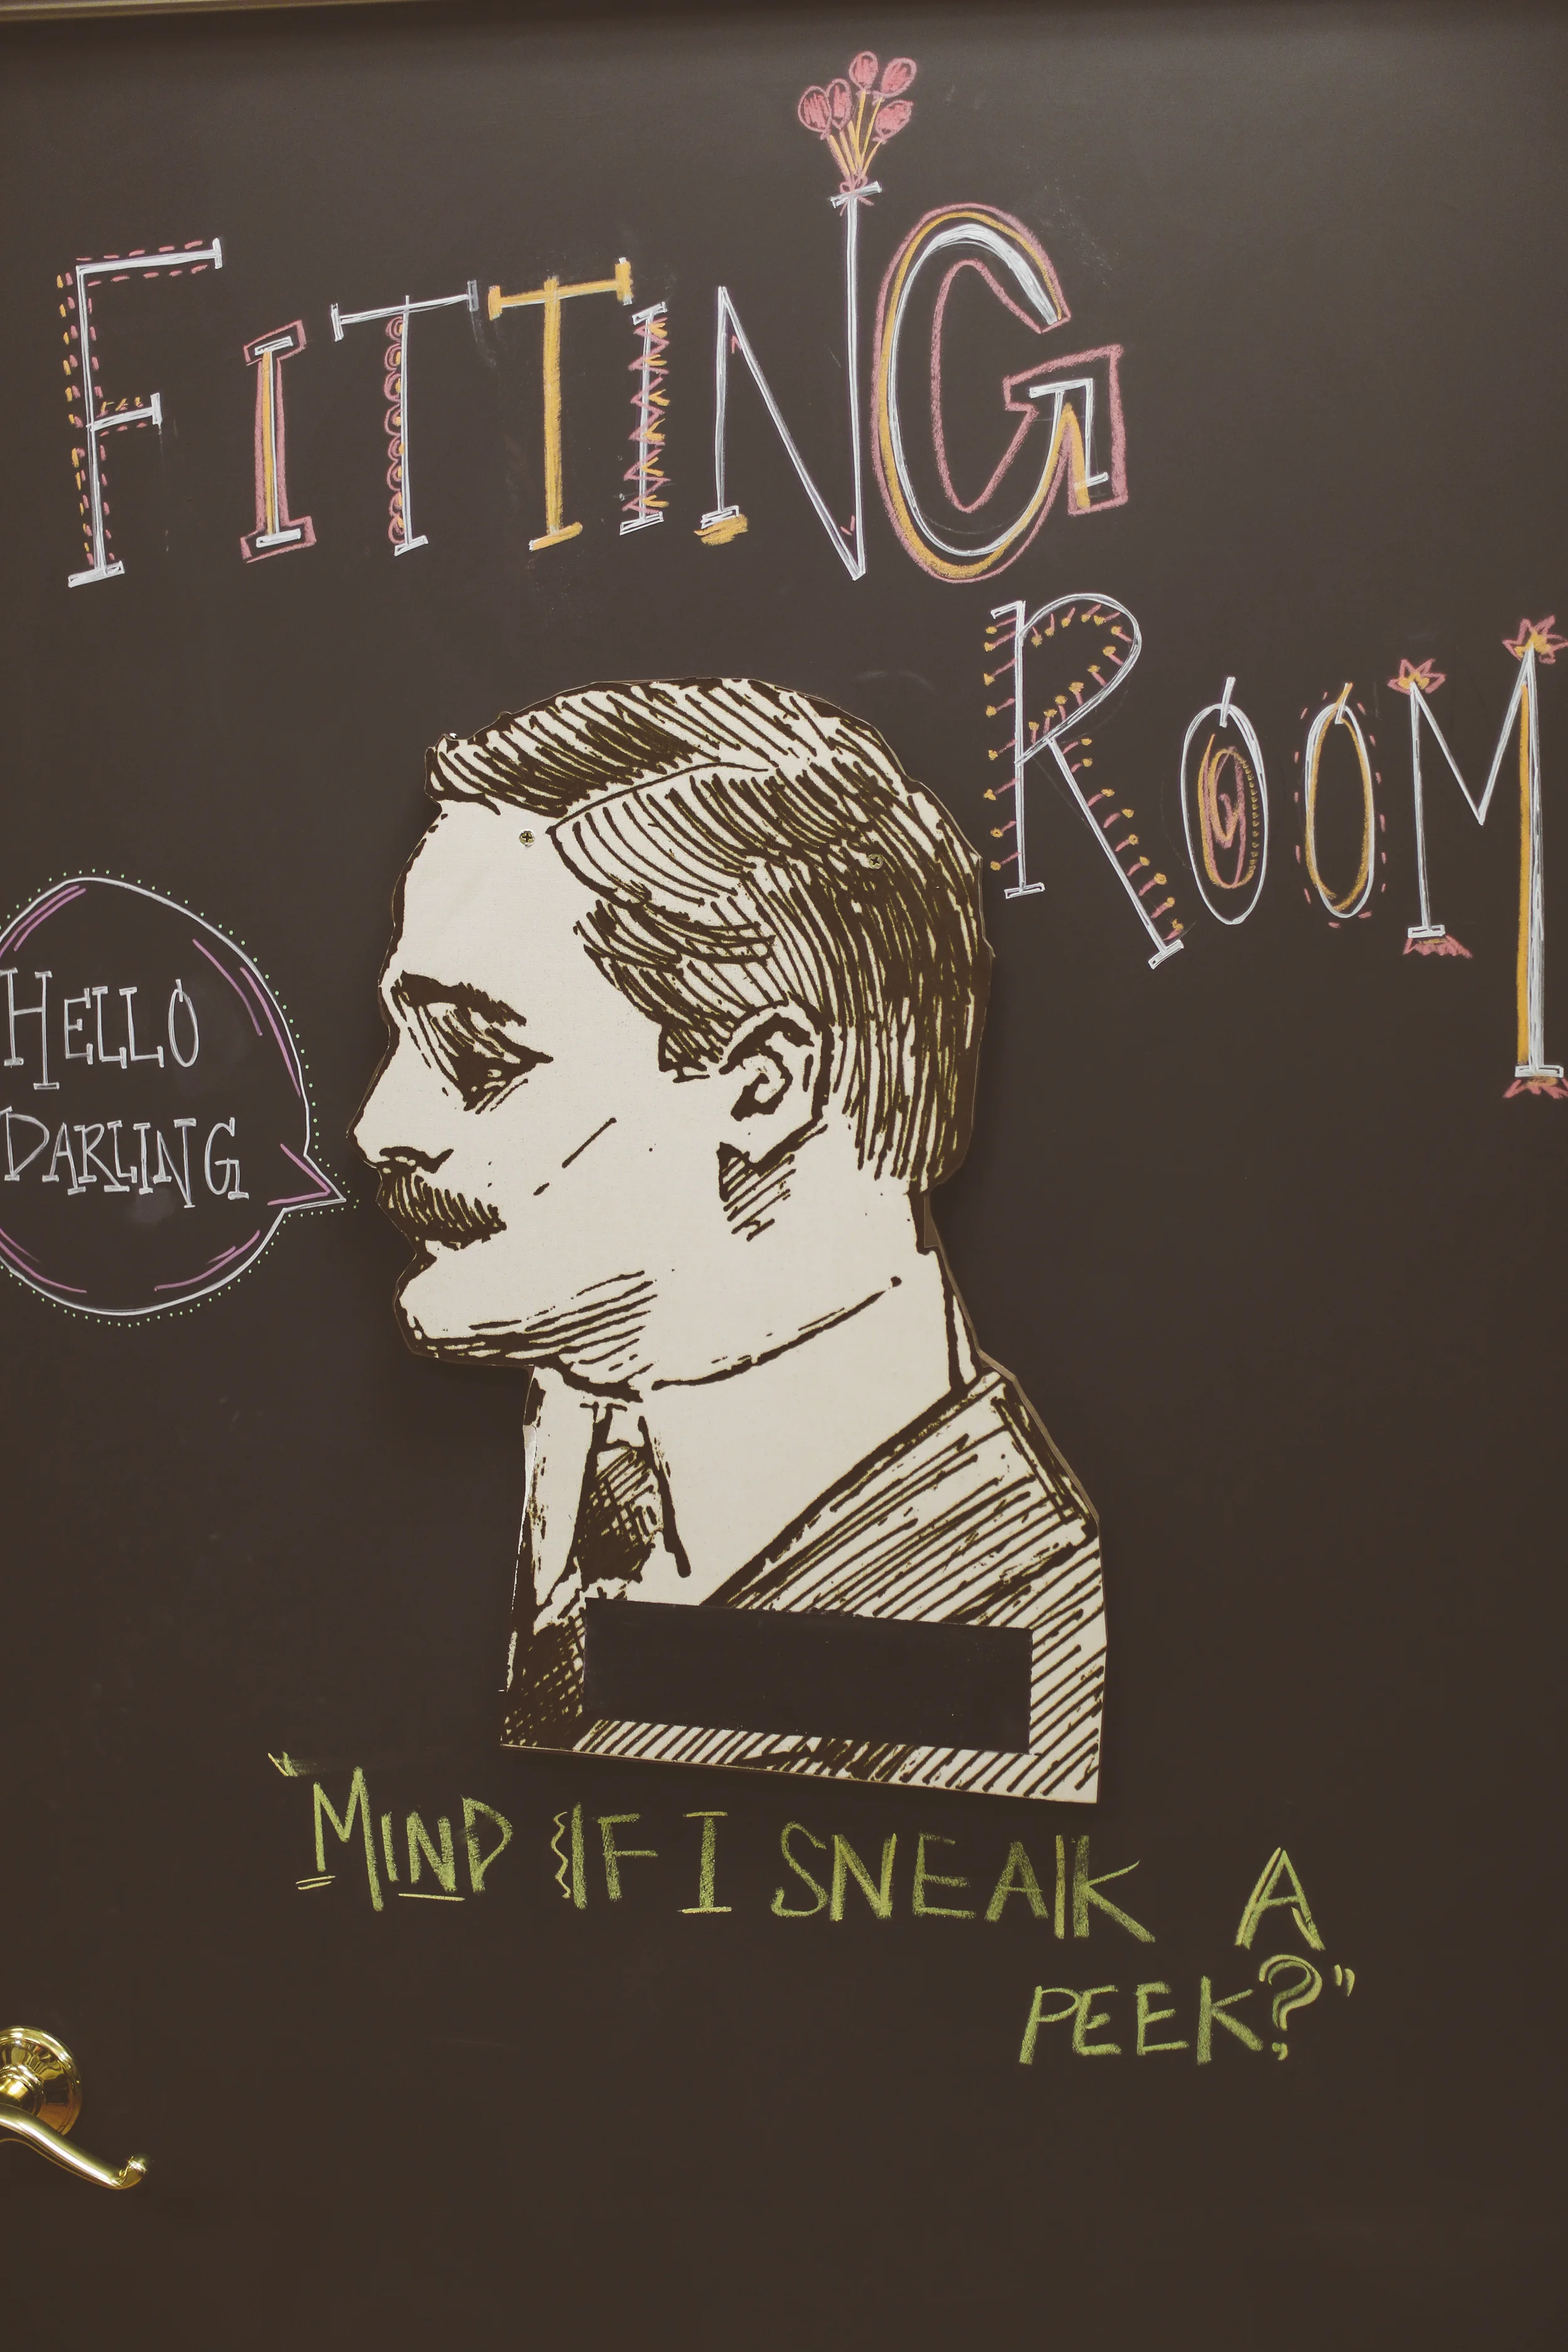 FiTTiNG
ROOM
HELLO
DARLING
"MIND IF I SNEAK A
PEEK?"